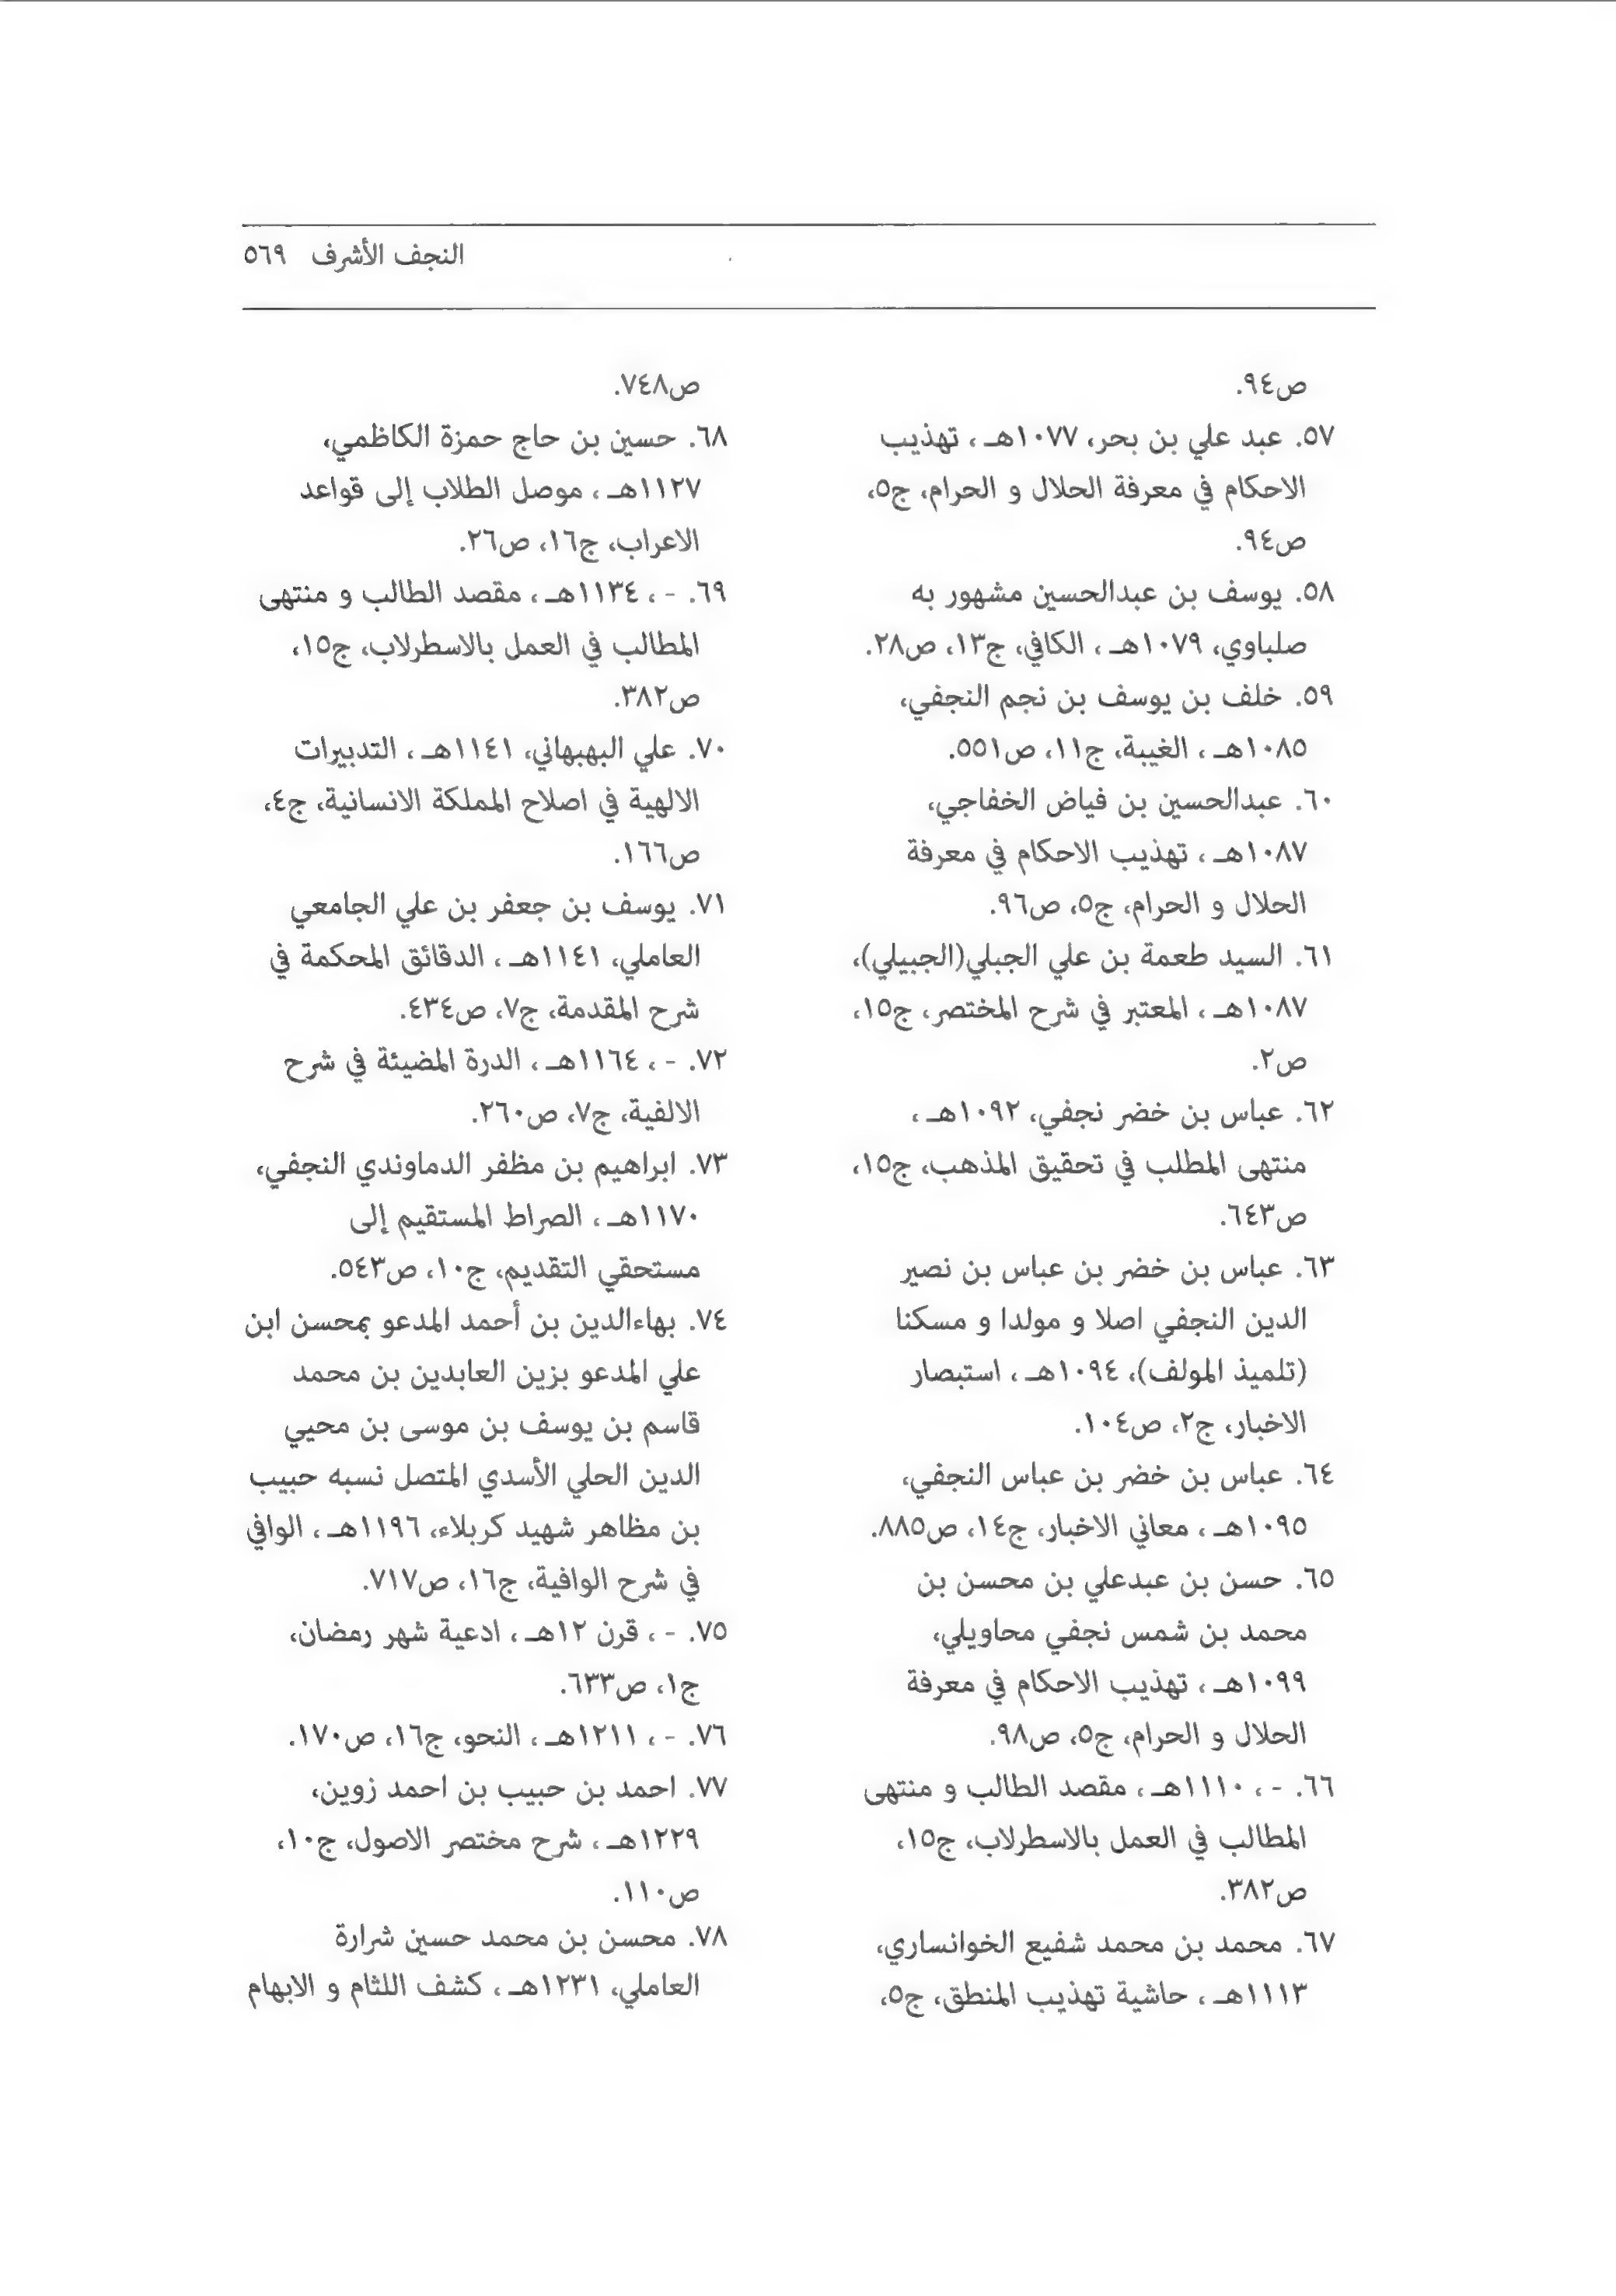 النجف الأشرف ٥٦٩
ص٩٤.
٥٧. عبد علي بن بحر، ١٠٧٧هـ ، تهذيب
الاحكام في معرفة الحلال و الحرام، ج٥،
ص٩٤.
٥٨. يوسف بن عبدالحسين مشهور به
صلباوي، ١٠٧٩هـ ، الكافي، ج١٣، ص٢٨.
٥٩. خلف بن يوسف بن نجم النجفي،
١٠٨٥هـ ، الغيبة، ج١١، ص٥٥١.
٦٠. عبدالحسين بن فياض الخفاجي،
١٠٨٧هـ ، تهذيب الاحكام في معرفة
الحلال و الحرام، ج٥، ص٩٦.
٦١. السيد طعمة بن علي الجبلي(الجبيلي)،
١٠٨٧هـ ، المعتبر في شرح المختصر، ج١٥،
ص٢.
٦٢. عباس بن خضر نجفي، ١٠٩٢هـ ،
منتهى المطلب في تحقيق المذهب، ج١٥،
ص٦٤٣.
٦٣. عباس بن خضر بن عباس بن نصير
الدين النجفي اصلا و مولدا و مسكنا
(تلميذ المولف)، ١٠٩٤هـ ، استبصار
الاخبار، ج٢، ص١٠٤.
٦٤. عباس بن خضر بن عباس النجفي،
١٠٩٥هـ ، معاني الاخبار، ج١٤، ص٨٨٥.
٦٥. حسن بن عبدعلي بن محسن بن
محمد بن شمس نجفي محاويلي،
١٠٩٩هـ ، تهذيب الاحكام في معرفة
الحلال و الحرام، ج٥، ص٩٨.
٦٦. - ، ١١١٠هـ ، مقصد الطالب و منتهى
المطالب في العمل بالاسطرلاب، ج١٥،
ص٣٨٢.
٦٧. محمد بن محمد شفيع الخوانساري،
١١١٣هـ ، حاشية تهذيب المنطق، ج٥،
ص٧٤٨.
٦٨. حسين بن حاج حمزة الكاظمي،
١١٢٧هـ ، موصل الطلاب إلى قواعد
الاعراب، ج١٦، ص٢٦.
٦٩. - ، ١١٣٤هـ ، مقصد الطالب و منتهى
المطالب في العمل بالاسطرلاب، ج١٥،
ص٣٨٢.
٧٠. علي البهبهاني، ١١٤١هـ ، التدبيرات
الالهية في اصلاح المملكة الانسانية، ج٤،
ص١٦٦.
٧١. يوسف بن جعفر بن علي الجامعي
العاملي، ١١٤١هـ ، الدقائق المحكمة في
شرح المقدمة، ج٧، ص٤٣٤.
٧٢. - ، ١١٦٤هـ ، الدرة المضيئة في شرح
الالفية، ج٧، ص٢٦٠.
٧٣. ابراهيم بن مظفر الدماوندي النجفي،
١١٧٠هـ ، الصراط المستقيم إلى
مستحقي التقديم، ج١٠، ص٥٤٣.
٧٤. بهاءالدين بن أحمد المدعو بمحسن ابن
علي المدعو بزين العابدين بن محمد
قاسم بن يوسف بن موسى بن محيي
الدين الحلي الأسدي المتصل نسبه حبيب
بن مظاهر شهيد كربلاء، ١١٩٦هـ ، الوافي
في شرح الوافية، ج١٦، ص٧١٧.
٧٥. - ، قرن ١٢هـ ، ادعية شهر رمضان،
ج١، ص٦٣٣.
٧٦. - ، ١٢١١هـ ، النحو، ج١٦، ص١٧٠.
٧٧. احمد بن حبيب بن احمد زوين،
١٢٢٩هـ ، شرح مختصر الاصول، ج١٠،
ص١١٠.
٧٨. محسن بن محمد حسين شرارة
العاملي، ١٢٣١هـ ، كشف اللثام و الابهام